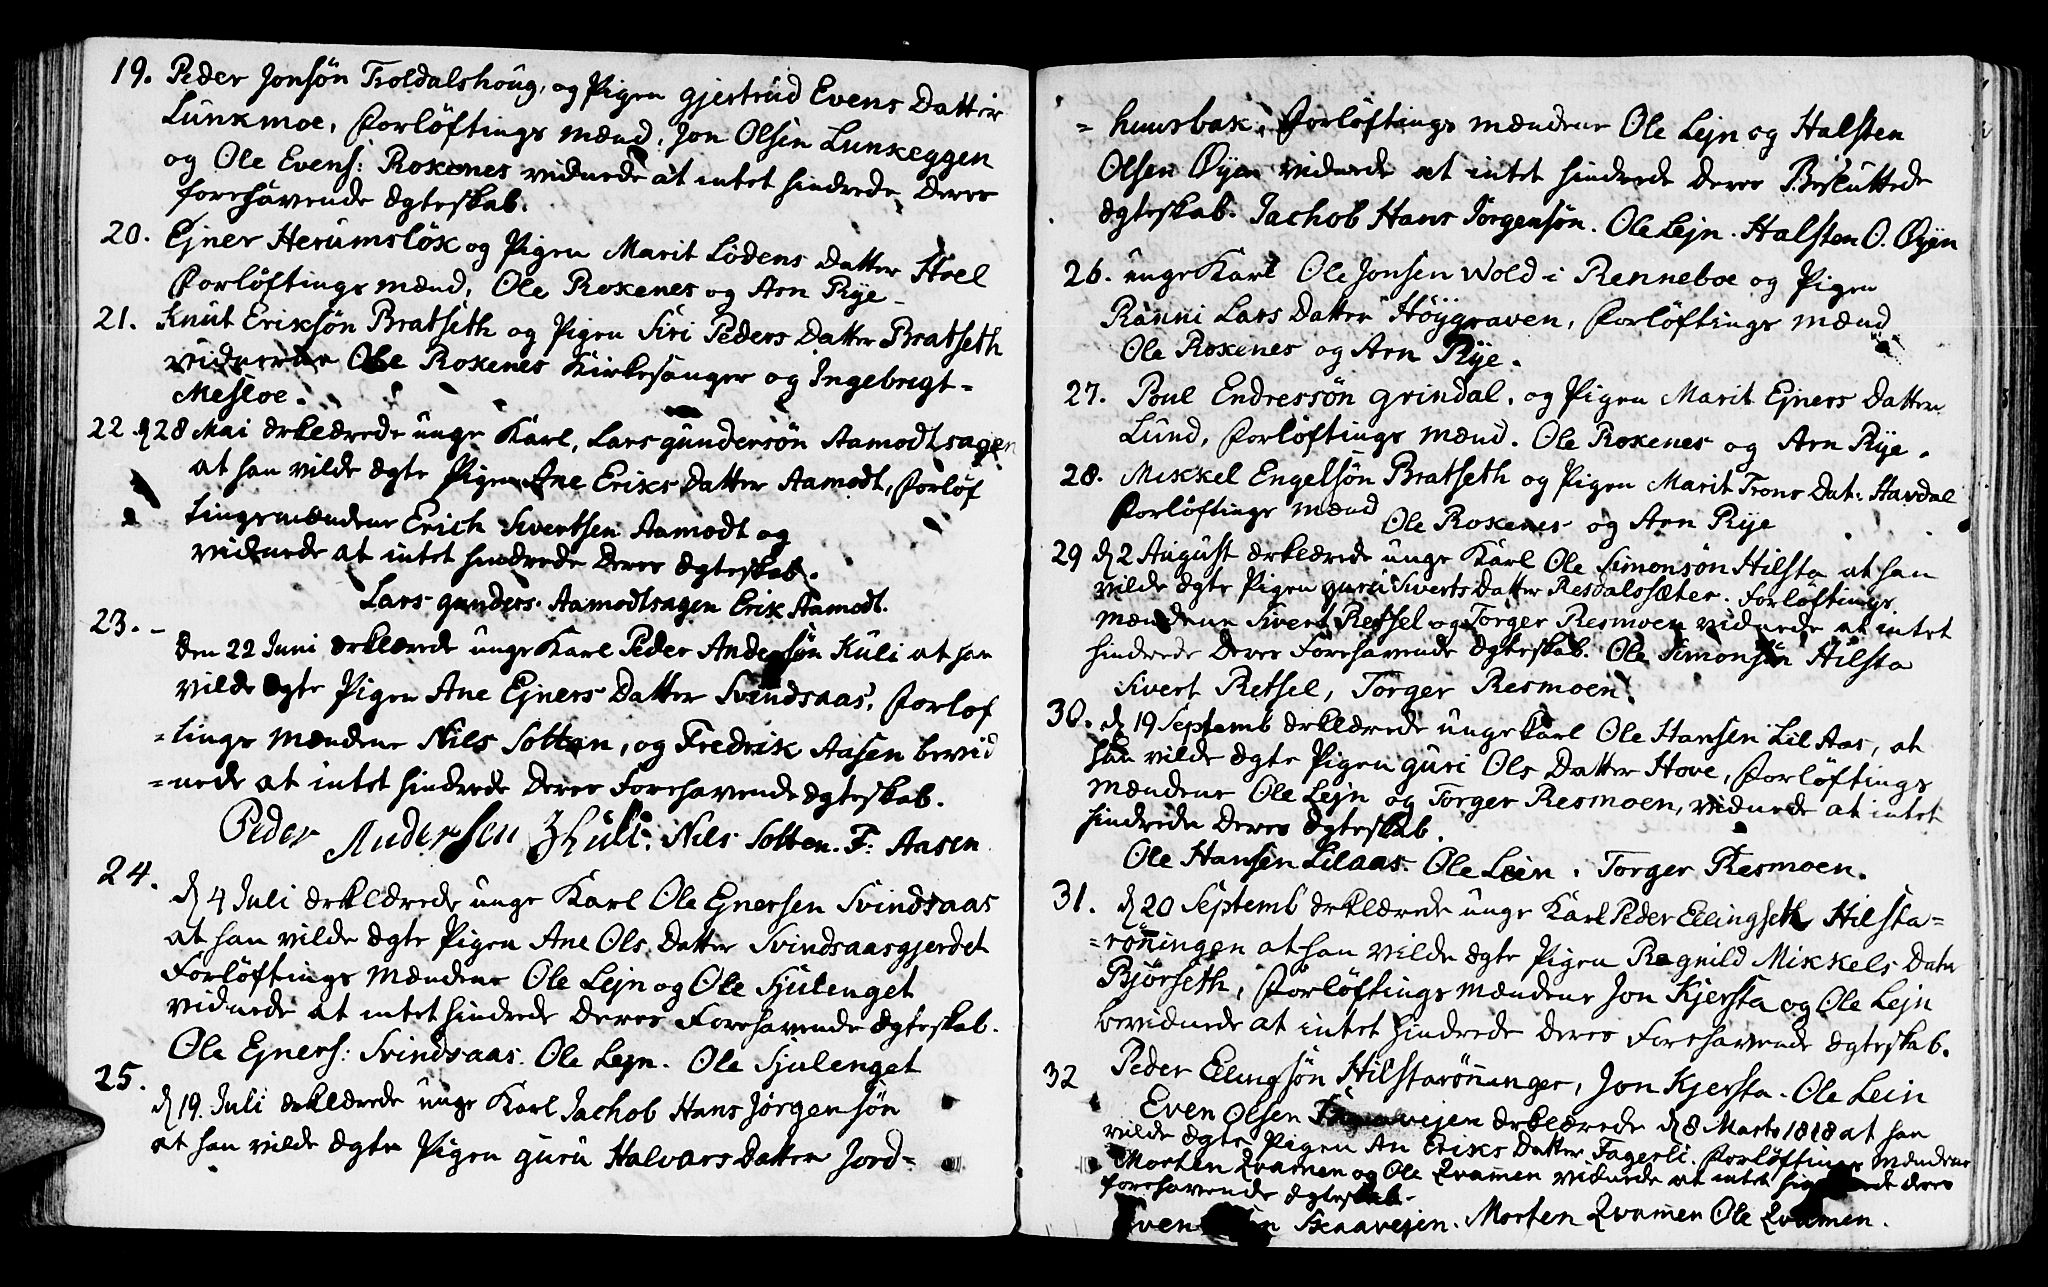 19. Peder Jonsøn Troldalshoug, og Pigen gjertrud Evens Datter
Lunkmoe, Forløftings mænd, Jon Olsen Lunkeggen
og Ole Evens: Roxenes vidnede at intet hindrede Deres
forehavende Ægteskab.
20. Ejner Herumsløk og Pigen Marit Lødens Datter Hoel
Forløftings mænd, Ole Roxenes og Arn Rye
21. Knut Eriksøn Bratseth og Pigen Siri Peders Datter Bratseth
vidnerne Ole Roxenes Kirkesanger og Ingebregt-
Mesloe.
22 d 28 Mai erklærede unge Karl, Lars gundersøn Aamodtsagen
at han vilde Ægte Pigen Ane Eriks Datter Aamodt, Forløf
tingsmændene Erich Sivertsen Aamodt og
vidnede at intet hindrede Deres Ægteskab.
Lars gunders. Aamodtsagen Erik Aamodt.
23. - Den 22 Juni erklærede unge Karl Peder Andersøn Kuli at han
vilde Ægte Pigen Ane Ejners Datter Svindsaas, Forløf
=tings Mændene Nils Solten, og Fredrik Aasen bevid
=nede at intet hindrede Deres Forehavende Ægteskab.
Peder Andersen Kuli. Nils Solten. F: Aasen
24. d 4 Juli erklærede unge Karl Ole Ejnersen Svindsaas
at han vilde Ægte Pigen Ane Ols Datter Svindsaasgjerdet
Forløftings Mændene Ole Lejn og Ole Sjulenget
vidnede at intet hindrede Deres Forehavende Ægteskab.
Ole Ejners: Svindsaas. Ole Lejn. Ole Sjulenget
25. d 19. Juli erklærede unge Karl Jachob Hans Jørgensøn
at han vilde Ægte Pigen guru Halvars Datter Jord=
= huusbak. Forløftings mændene Ole Lejn og Halsten
Olsen Øyen vidnede at intet hindrede Deres Besluttede
Ægteskab. Jachob Hans Jørgensøn. Ole Lejn. Halsten O. Øyen
26. unge Karl Ole Jonsen Wold i Renneboe og Pigen
Ranni Lars Datter Høygraven, Forløftings mænd
Ole Roxenes og Arn Rye.
27. Poul Endressøn grindal, og Pigen Marit Ejners Datter
Lund, Forløftings mænd. Ole Roxenes og Arn Rye.
28. Mikkel Engelsøn Bratseth og Pigen Marit Trons Dat: Havdal
Forløftings mænd Ole Roxenes og Arn Rye
29 d 2 August erklærede unge Karl Ole Simonsøn Hilsta at han
vilde Ægte Pigen guru Siverts Datter Resdalssæter. Forløftings
mændene Sivert Retsel og Torger Resmoen vidnede at intet
hindrede Deres Forehavende Ægteskab. Ole Simonsøn Hilsta
Sivert Retsel, Torger Resmoen.
30. d 19 Septemb erklærede unge Karl Ole Hansen Lil Aas, at
han vilde Ægte Pigen guri Ols Datter Hove, Forløftings
mændene Ole Lejn og Torger Resmoen, vidnede at intet
hindrede Deres Ægteskab.
Ole Hansen Lilaas. Ole Lein. Torger Resmoen.
31. d 20 Septemb erklærede unge Karl Peder Ellingseth Hilsta=
=rønningen at han vilde Ægte Pigen Ragnild Mikkels Dater
Bjørseth, Forløftings mændene Jon Kjersta og Ole Lejn
bevidnede at intet hindrede Deres Forehavende Ægteskab.
Peder Elingsøn Hilstarønninger, Jon Kjersta. Ole Lein
32 Even Olsen erklærede d 8 Marts 1818 at han
vilde Ægte Pigen An Eriks Datter Fagerli. Forløftings mændene
Morten Qvamen og Ole Qvamen vidnede at intet hindrede deres
forehavende Ægteskab.
Even Skaavejen. Morten Qvamen Ole Qvamen.